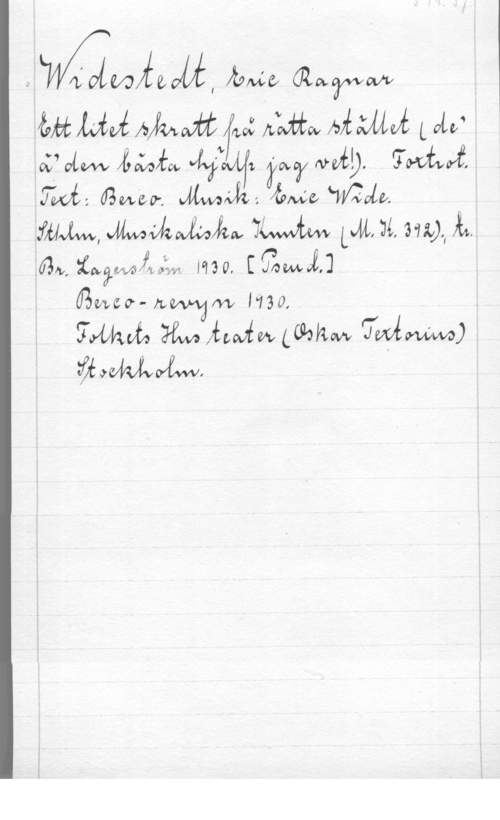 Widestedt, Eric Ragnar
Ett litet skratt på rätta stället (de'
ä' den bästa hjälp jag vet!). Foxtrot.
Text: Berco. Musik: Eric Wide.
Sthlm, Musikaliska Knuten (M. K. 392), tr.
Br. Lagerström 1930. [Pseud.]
Berco-revyn 1930.
Folkets Hus teater (Oskar Textorius)
Stockholm.